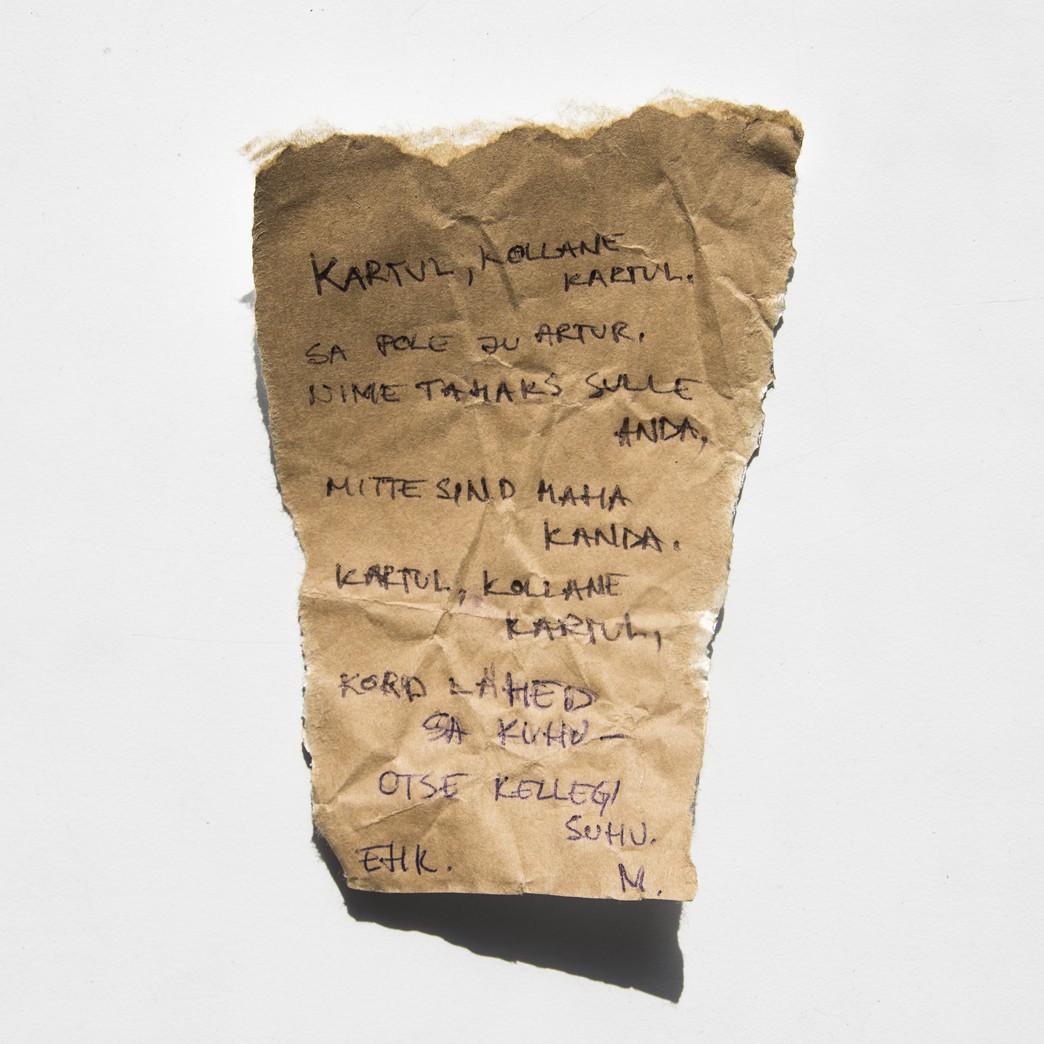 KARTUL, KOLLANE
KARTUL.
SA POLE JU ARTUR.
NIME TAHAKS SULLE
ANDA,
MITTE SIND MAHA
KANDA.
KARTUL, KOLLANE
KARTUL,
KORD LÄHED
SA KUHU—
OTSE KELLEGI
SUHU.
EHK.
M.